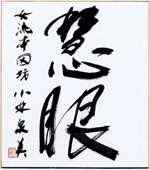 慧眼
女流本因坊 小林泉美